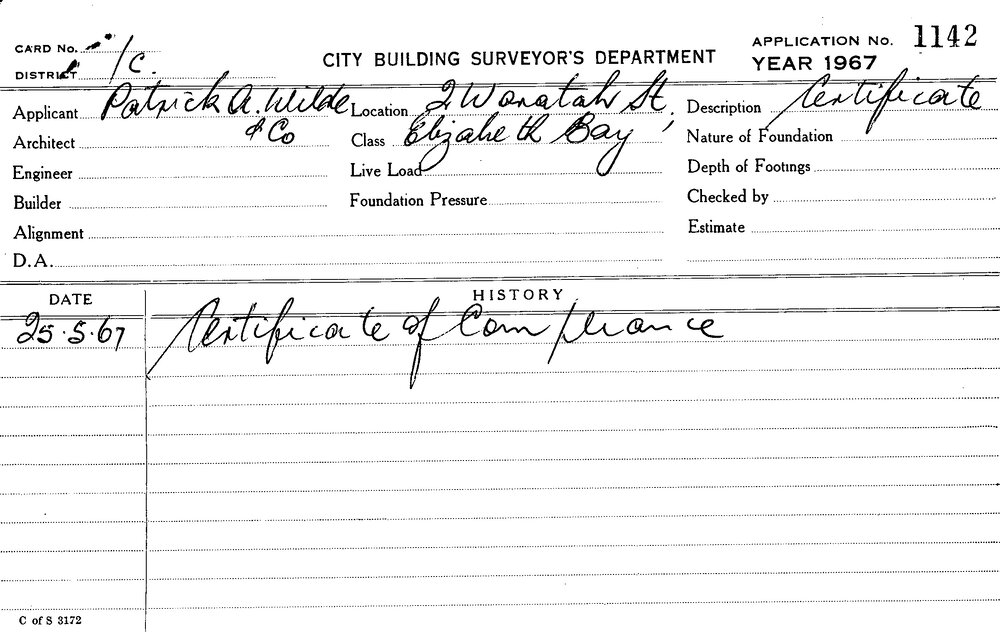 CARD No.
DISTRICT /C.
CITY BUILDING SURVEYOR'S DEPARTMENT
APPLICATION No. 1142
YEAR 1967
Applicant Patrick A. Wilde
& Co
Architect
Engineer
Builder
Alignment
D.A.
Location 2 Waratah St,
Class Elizabeth Bay
Live Load
Foundation Pressure
Description Certificate
Nature of Foundation
Depth of Footings
Checked by
Estimate
DATE HISTORY
25.5.67 Certificate of Compliance
C of S 3172